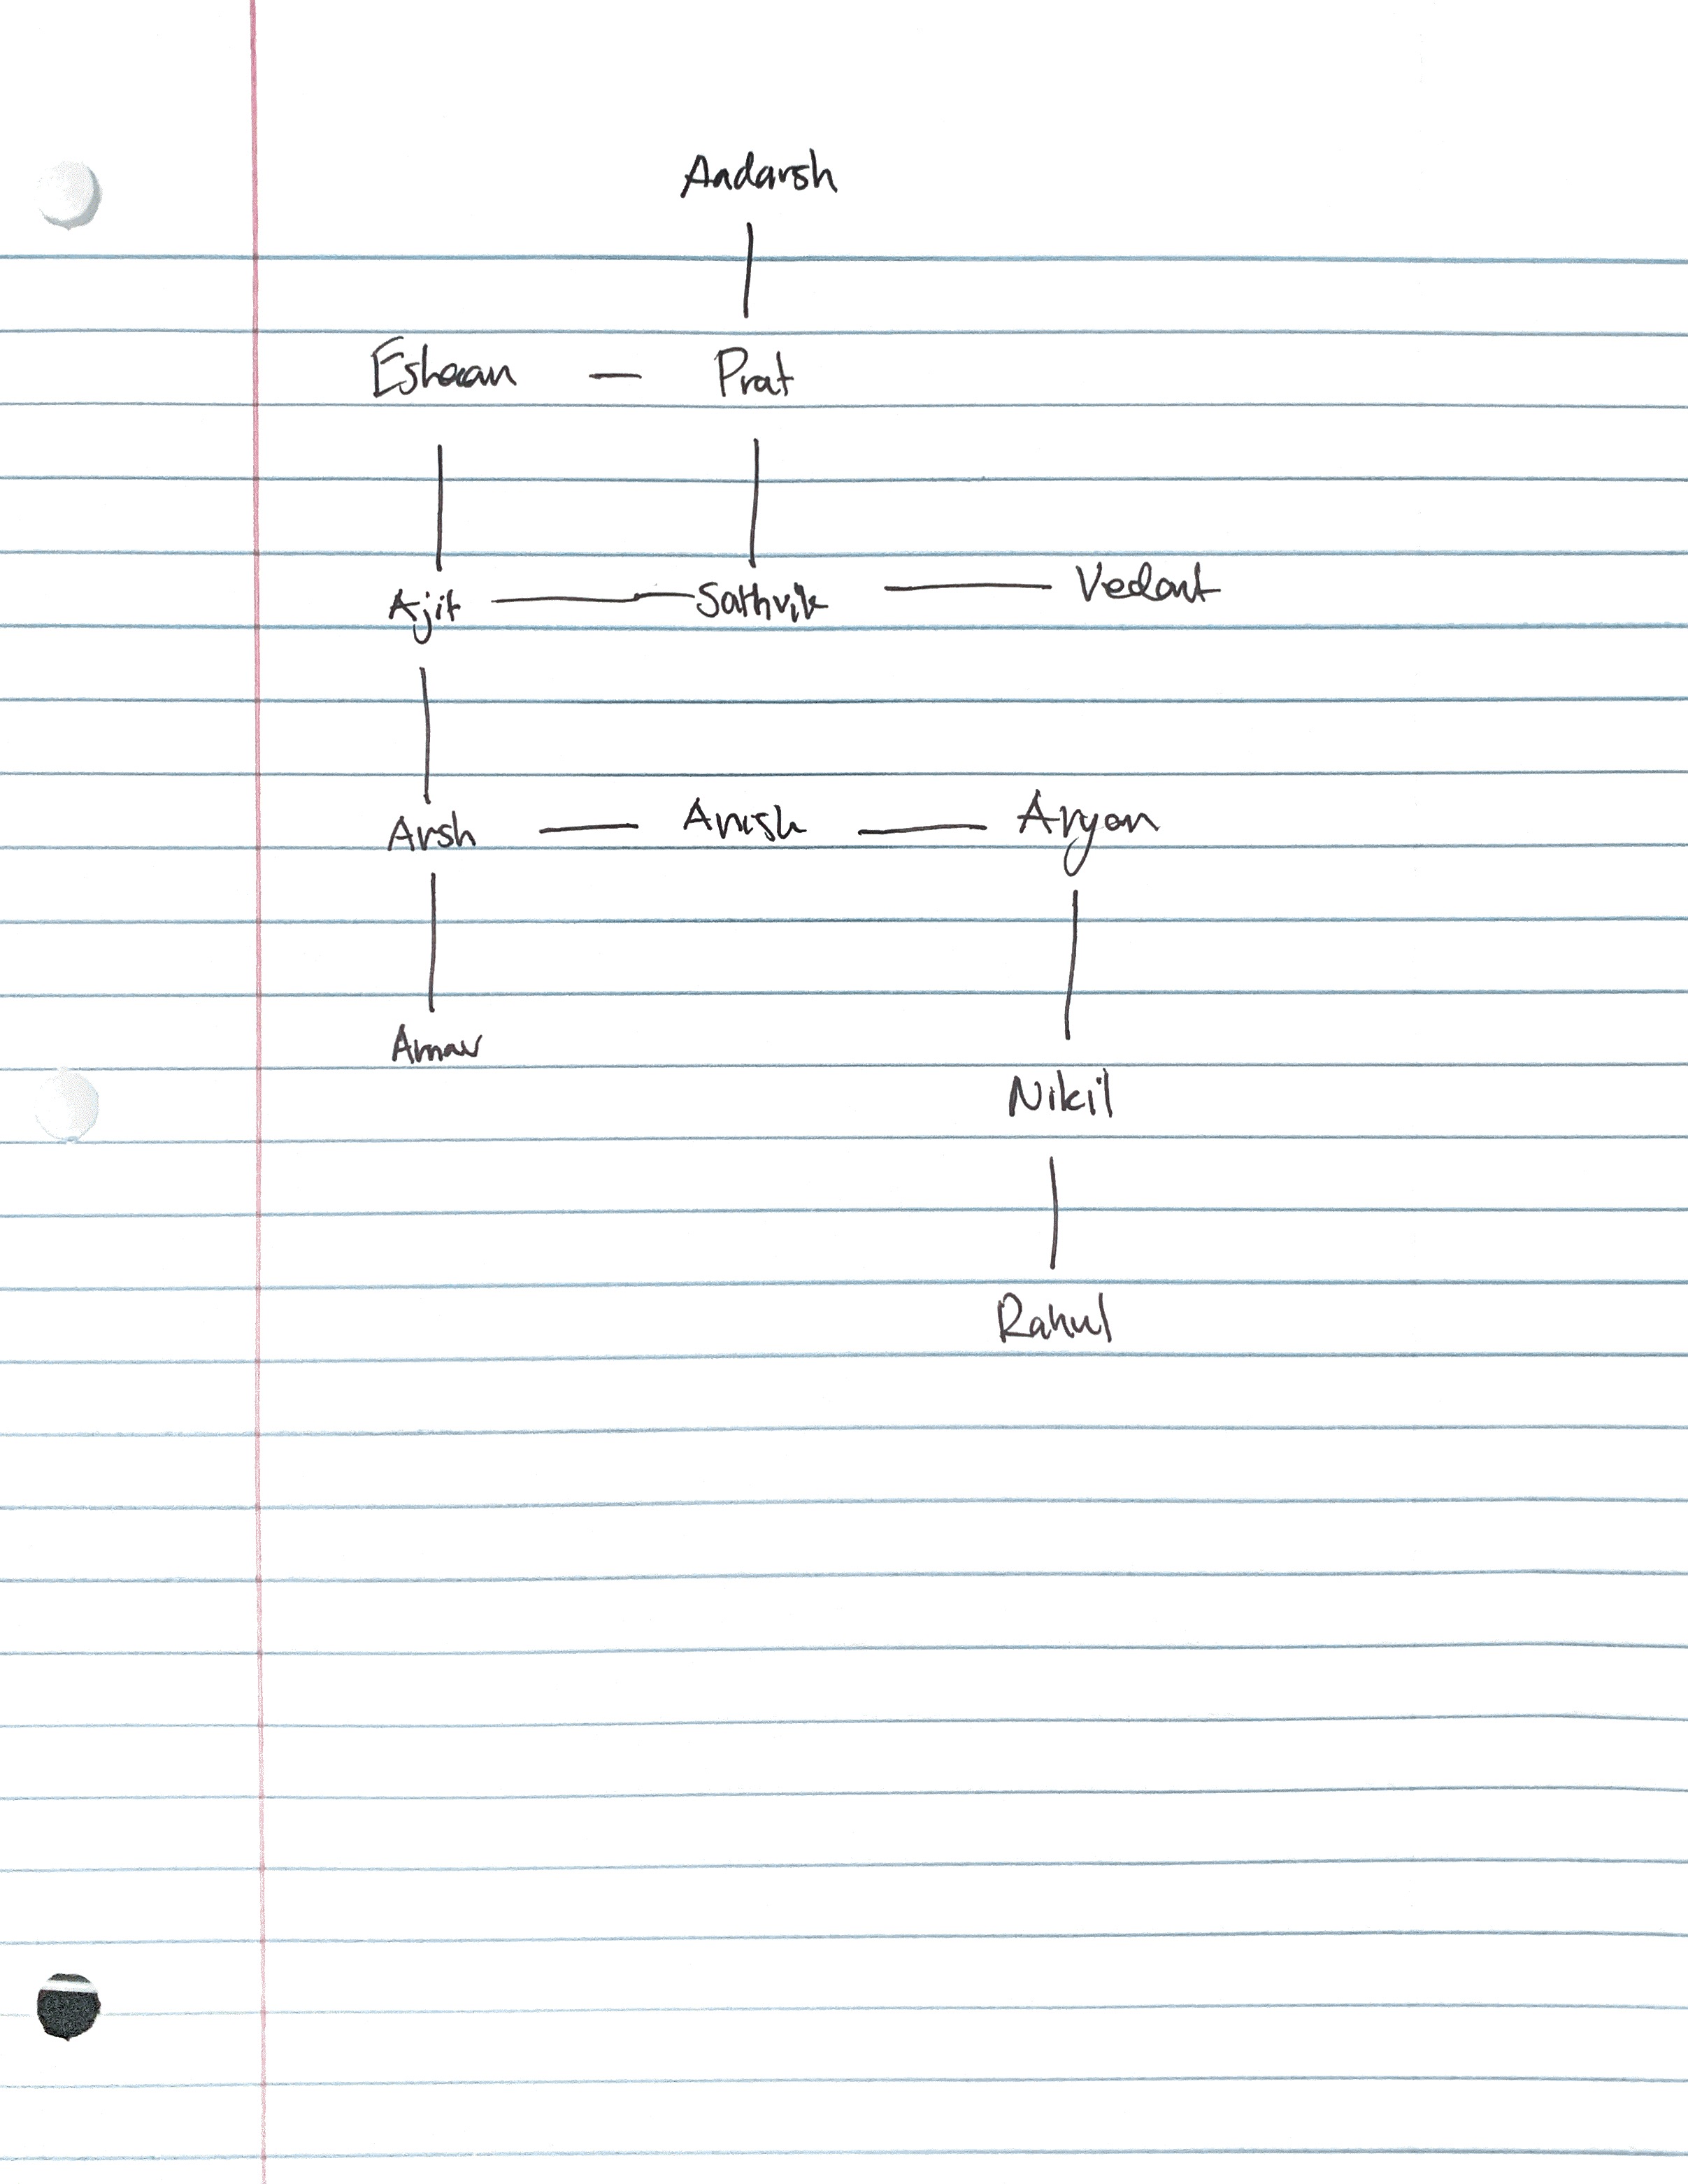 Aadarsh
Eshaan — Prat
Ajit — Sathvik — Vedant
Arsh — Anish — Aryan
Arnav
Nikil
Rahul